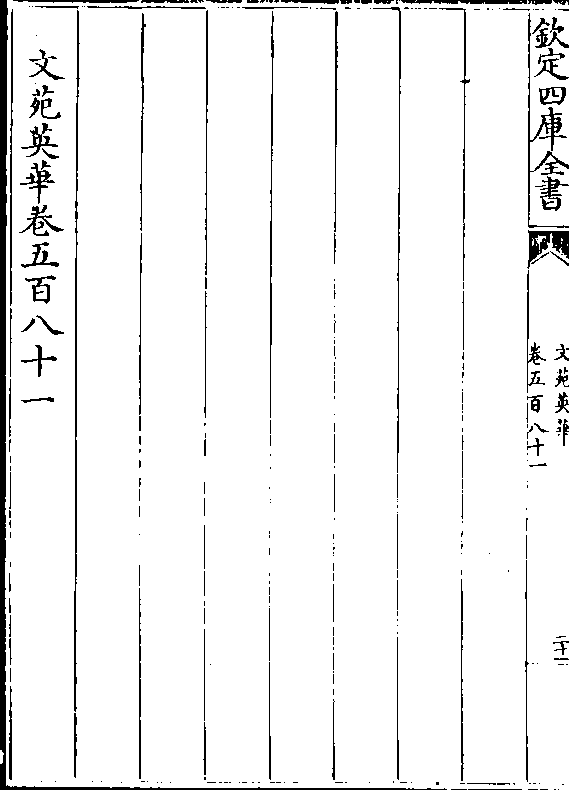 欽定四庫全書
文苑英華
卷五百八十一
二十一
文苑英華卷五百八十一